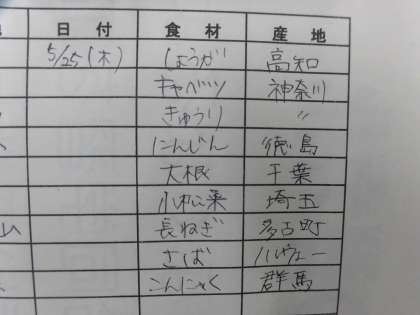 日付 食材 産地
5/25(木) しょうが 高知
キャベツ 神奈川
きゅうり 〃
にんじん 徳島
大根 千葉
小松菜 埼玉
長ねぎ 多古町
さば ノルウェー
こんにゃく 群馬